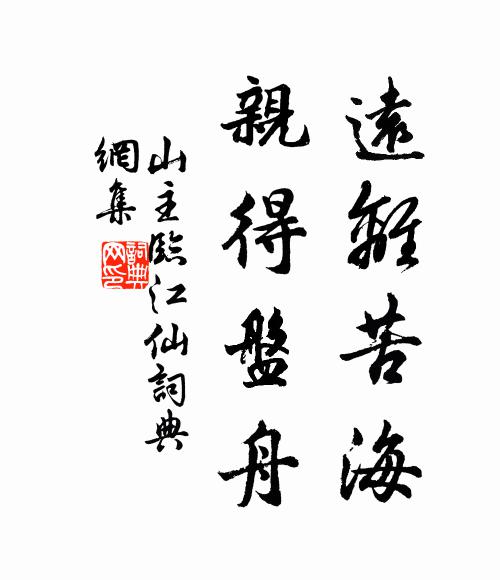 遠離苦海
親得盤舟
山主臨江仙詞典
網集
詞典
网印